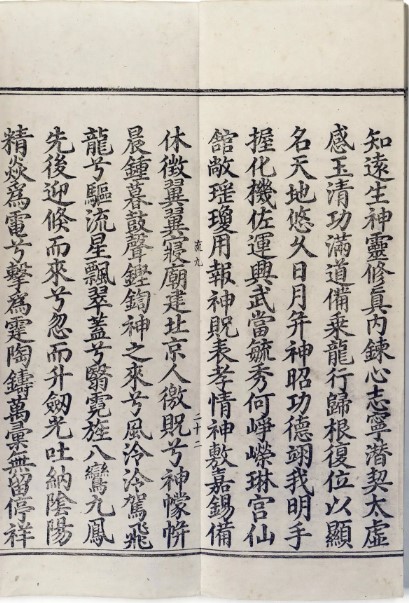 知遠生神靈修眞內鍊心志寧潛契太虛
感玉清功滿道備乘龍行歸根復位以顯
名天地悠久日月并神昭功德翊我明手
握化機佐運興武當毓秀何崢嶸琳宮仙
館敞瑤瓊用報神貺表孝情神敷嘉錫備
二十二
休徵翼翼寢廟建北京人徼貺兮神幪帡
晨鍾暮鼓聲鏗鍧神之來兮風泠泠駕飛
龍兮驅流星飄翠蓋兮翳霓旌八鸞九鳳
先後迎倏而來兮忽而升劒光吐納陰陽
精焱爲電兮擊爲霆陶鑄萬彙無留停祥